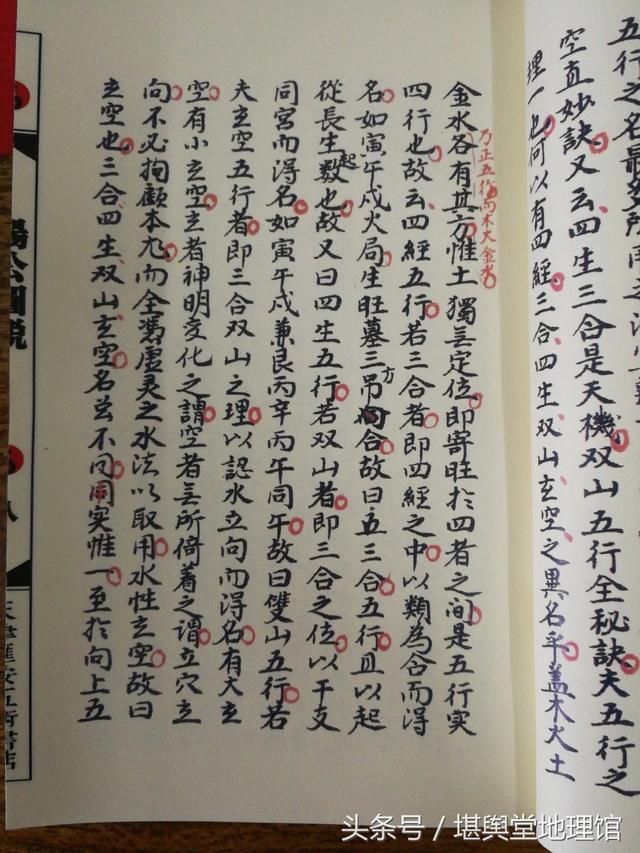 五行之名最多
空直妙訣又云四生三合是天機双山五行全秘訣夫五行之
理一也何以有四經三合四生双山玄空之異名乎盖木火土
乃正五行而木火金水
金水各有其方惟土獨無定位即寄旺於四者之間是五行實
四行也故云四經五行若三合者即四經之中以類為合而得
名如寅午戍火局生旺墓三方吊合故曰三合五行且以起
從長生起數也故又曰四生五行若双山者即三合之位以干支
同宮而得名如寅午戍兼艮丙辛丙午同午故曰雙山五行若
夫玄空五行者即三合双山之理以認水立向而得名有大玄
空有小玄空玄者神明变化之謂空者無所倚着之謂立穴立
向不必拘顧本九而全憑虚灵之水法以取用水性玄空故曰
玄空也三合四生双山玄空名並不同同實惟一至於向上五
八
头条号／堪舆堂地理馆